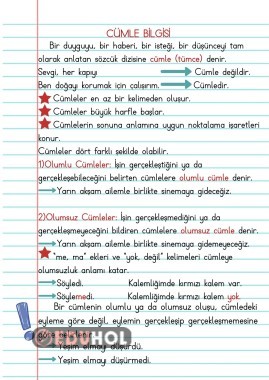 CÜMLE BİLGİSİ
Bir duyguyu, bir haberi, bir isteği, bir düşünceyi tam
olarak anlatan sözcük dizisine cümle (tümce) denir.
Sevgi, her kapıyı Cümle değildir.
Ben doğayı korumak için çalışırım. Cümledir.
Cümleler en az bir kelimeden oluşur.
Cümleler büyük harfle başlar.
Cümlelerin sonuna anlamına uygun noktalama işaretleri
konur.
Cümleler dört farklı şekilde olabilir.
1)Olumlu Cümleler: İşin gerçekleştiğini ya da
gerçekleşebileceğini belirten cümlelere olumlu cümle denir.
Yarın akşam ailemle birlikte sinemaya gideceğiz.
2)Olumsuz Cümleler: İşin gerçekleşmediğini ya da
gerçekleşmeyeceğini bildiren cümlelere olumsuz cümle denir.
Yarın akşam ailemle birlikte sinemaya gidemeyeceğiz.
"me, ma" ekleri ve "yok, değil" kelimeleri cümleye
olumsuzluk anlamı katar.
Söyledi. Kalemliğimde kırmızı kalem var.
Söylemedi. Kalemliğimde kırmızı kalem yok.
Bir cümlenin olumlu ya da olumsuz oluşu, cümledeki
eyleme göre değil, eylemin gerçekleşip gerçekleşmemesine
göre belirlenir.
EDUHOL
Yeşim elmayı düşürdü.
Yeşim elmayı düşürmedi.